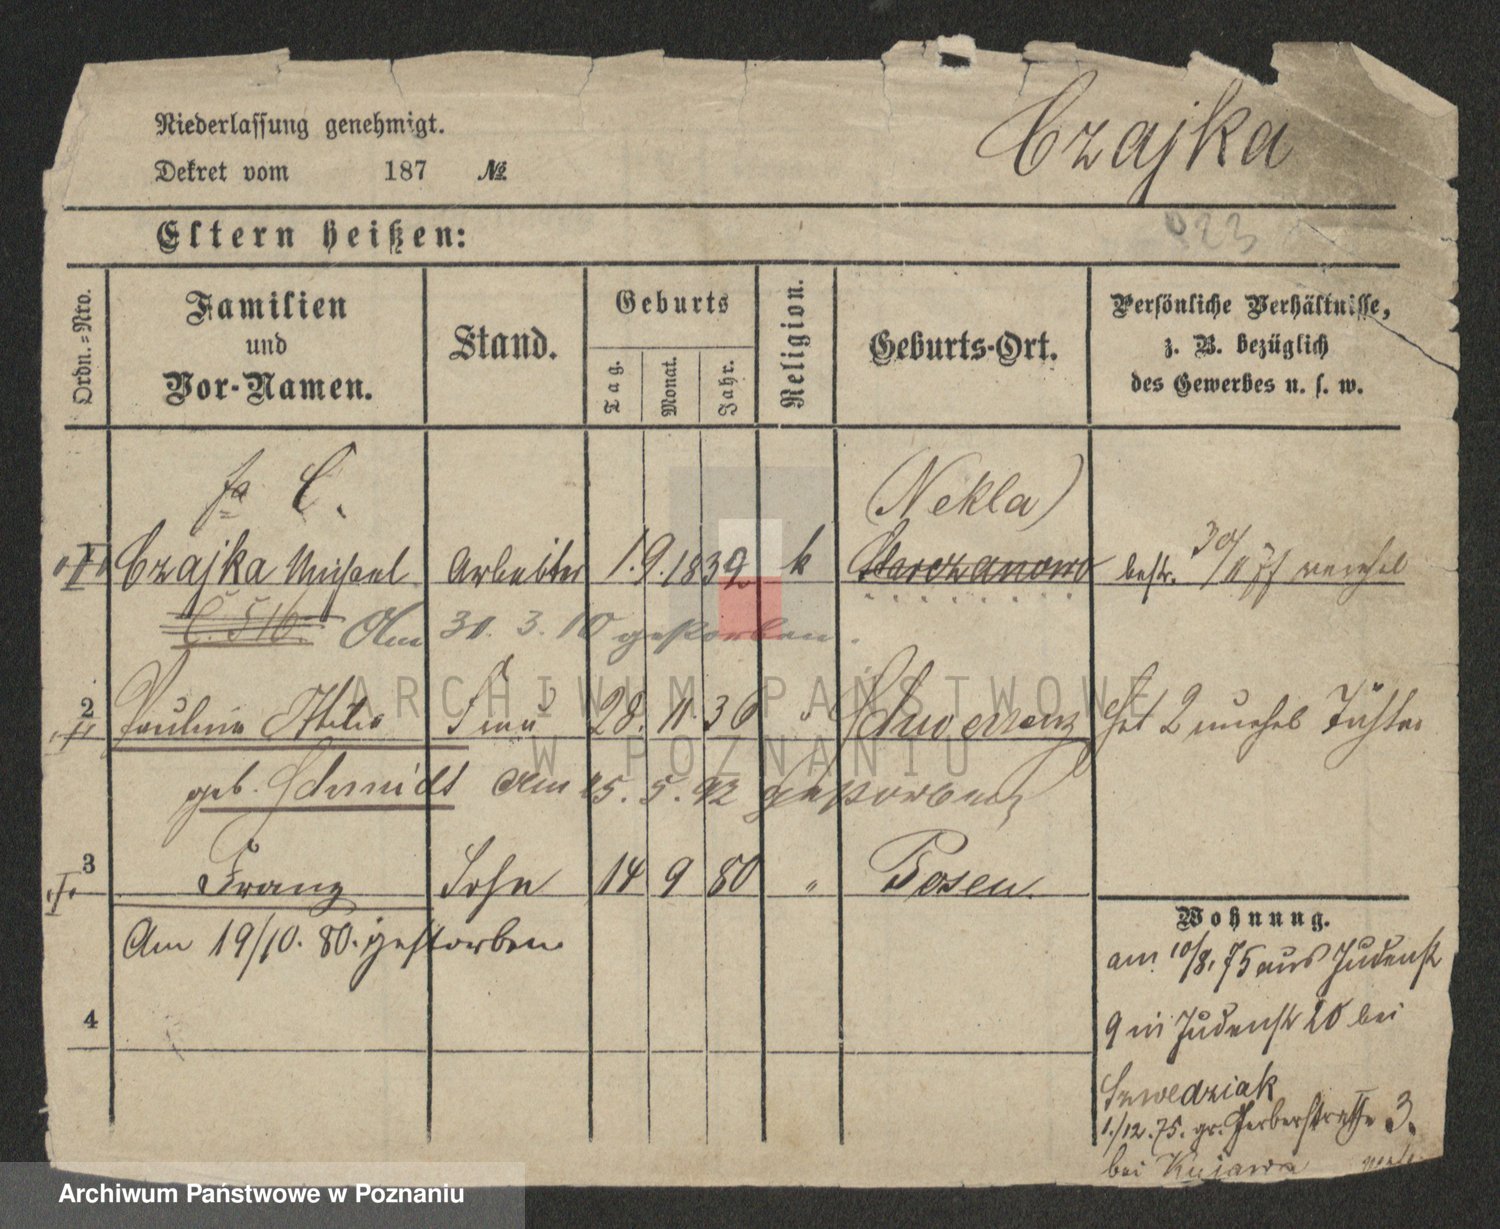 Niederlassung genehmigt.
Czajka
Dekret vom 187 №
Eltern heißen:
923
Ordn.=Nro.
Familien
und
Vor-Namen.
Stand.
Geburts
Tag.
Monat.
Jahr.
Religion.
Geburts-Ort.
Persönliche Verhältnisse,
z. B. bezüglich
des Gewerbes u. s. w.
C.
(Nekla)
1 Czajka Michael Arbeiter 1. 9. 1839 k
Am 30. 3. 10 gestorben.
2 Pauline Frau 28. 11. 36 " Schwersenz Hat 2 unehel Töchter
geb. Schmidt Am 25. 5. 92 gestorben
3 Franz Sohn 14 9 80 " Posen.
Am 19/10. 80. gestorben.
4
Wohnung.
am 10/8. 75 aus Judenst
9 in Judenstr 20 bei
Szwedziak
1./12. 75. gr. Gerberstraße 3.
bei Kujawa
ARCHIWUM PAŃSTWOWE
W POZNANIU
Archiwum Państwowe w Poznaniu